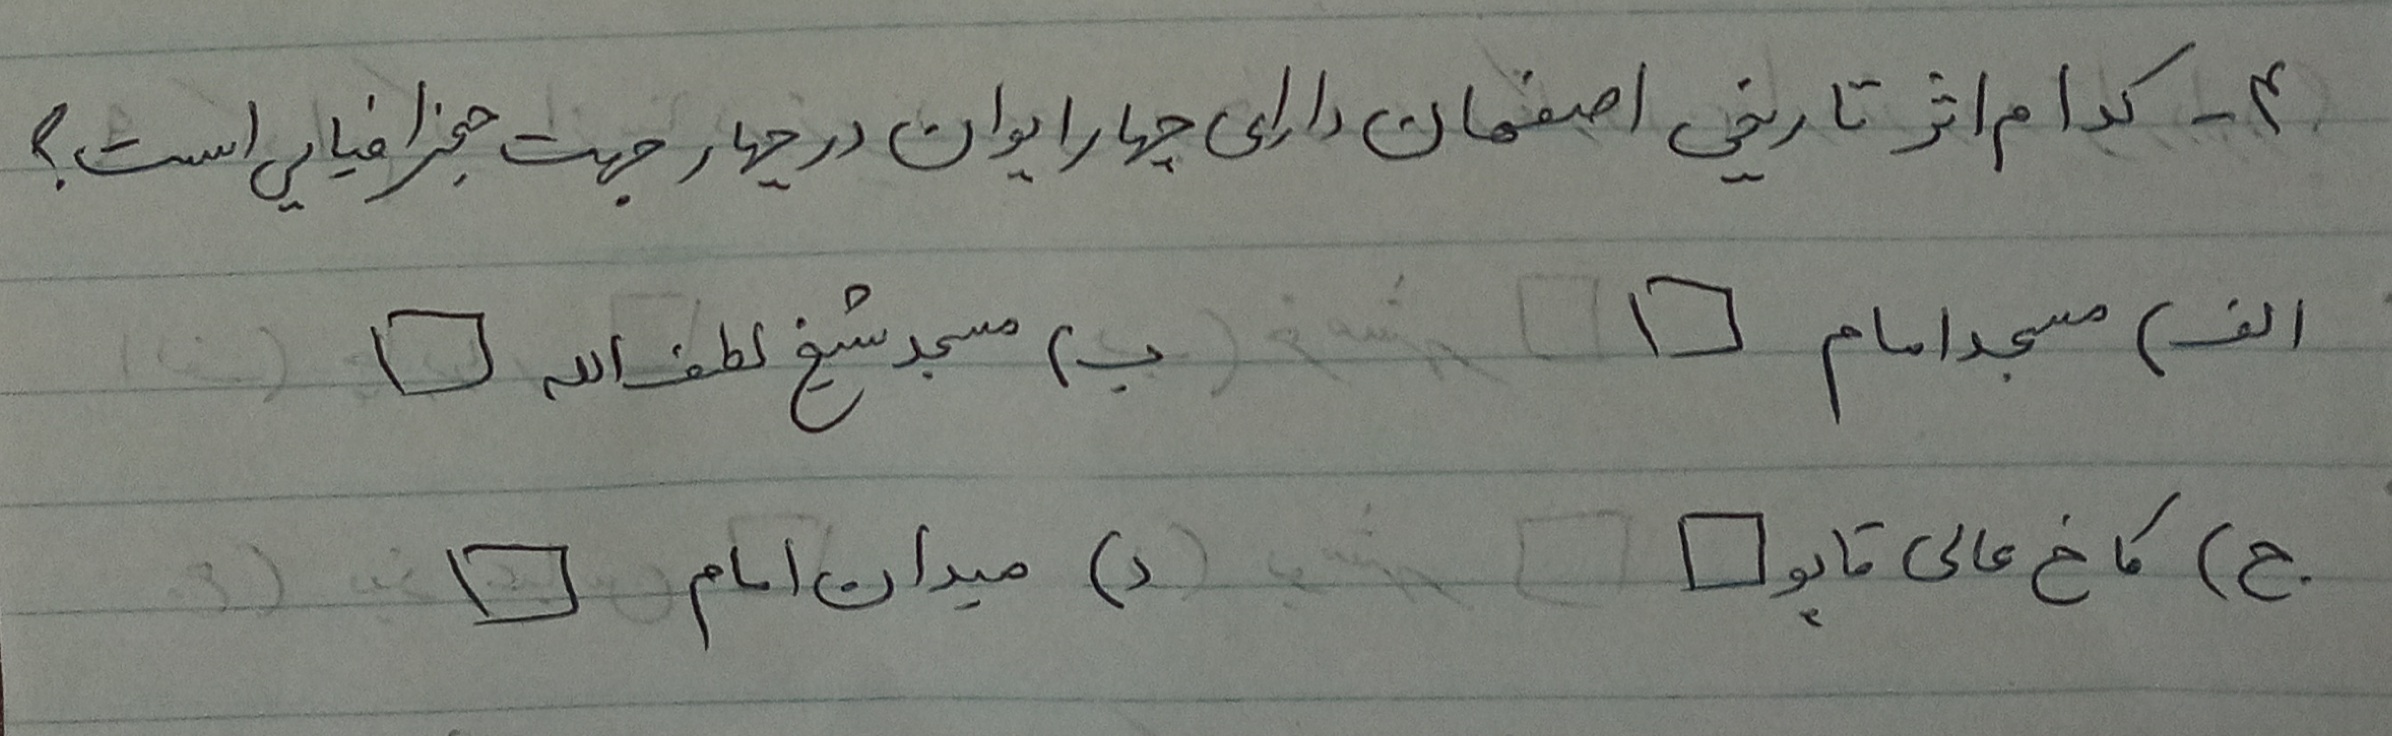 ۴- کدام اثر تاریخی اصفهان دارای چهار ایوان در چهار جهت جغرافیایی است؟
الف) مسجد امام □ ب) مسجد شیخ لطف الله □
ج) کاخ عالی قاپو □ د) میدان امام □